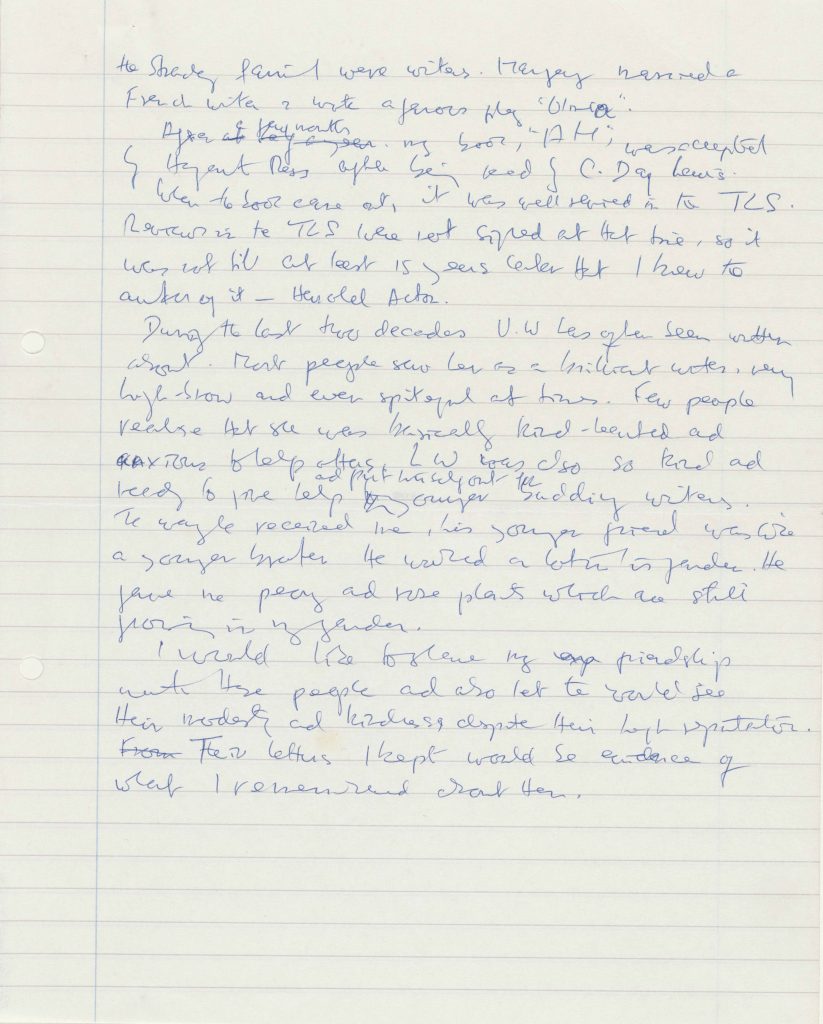 the Strachey family were writers. Margery married a
French writer & wrote a famous play "Olivia".
After a few months my book, "AM", was accepted
by Hogarth Press after being read by C. Day Lewis.
When the book came out, it was well reviewed in the TLS.
Reviews in the TLS were not signed at that time, so it
was not till at least 15 years later that I knew the
author of it — Harold Acton.
During the last two decades V.W has often been written
about. Most people saw her as a brilliant writer, very
high-brow and even spiteful at times. Few people
realise that she was basically kind-hearted and
anxious to help others. L W was also so kind and
ready to give help and put himself out to younger budding writers.
The way he received me, his younger friend was like
a younger brother. He worked a lot in his garden. He
gave me peony and rose plants which are still
growing in my garden.
I would like to share my friendship
with these people and also let the world see
their modesty and kindness despite their high reputation.
Their letters I kept would be evidence of
what I remembered about them.